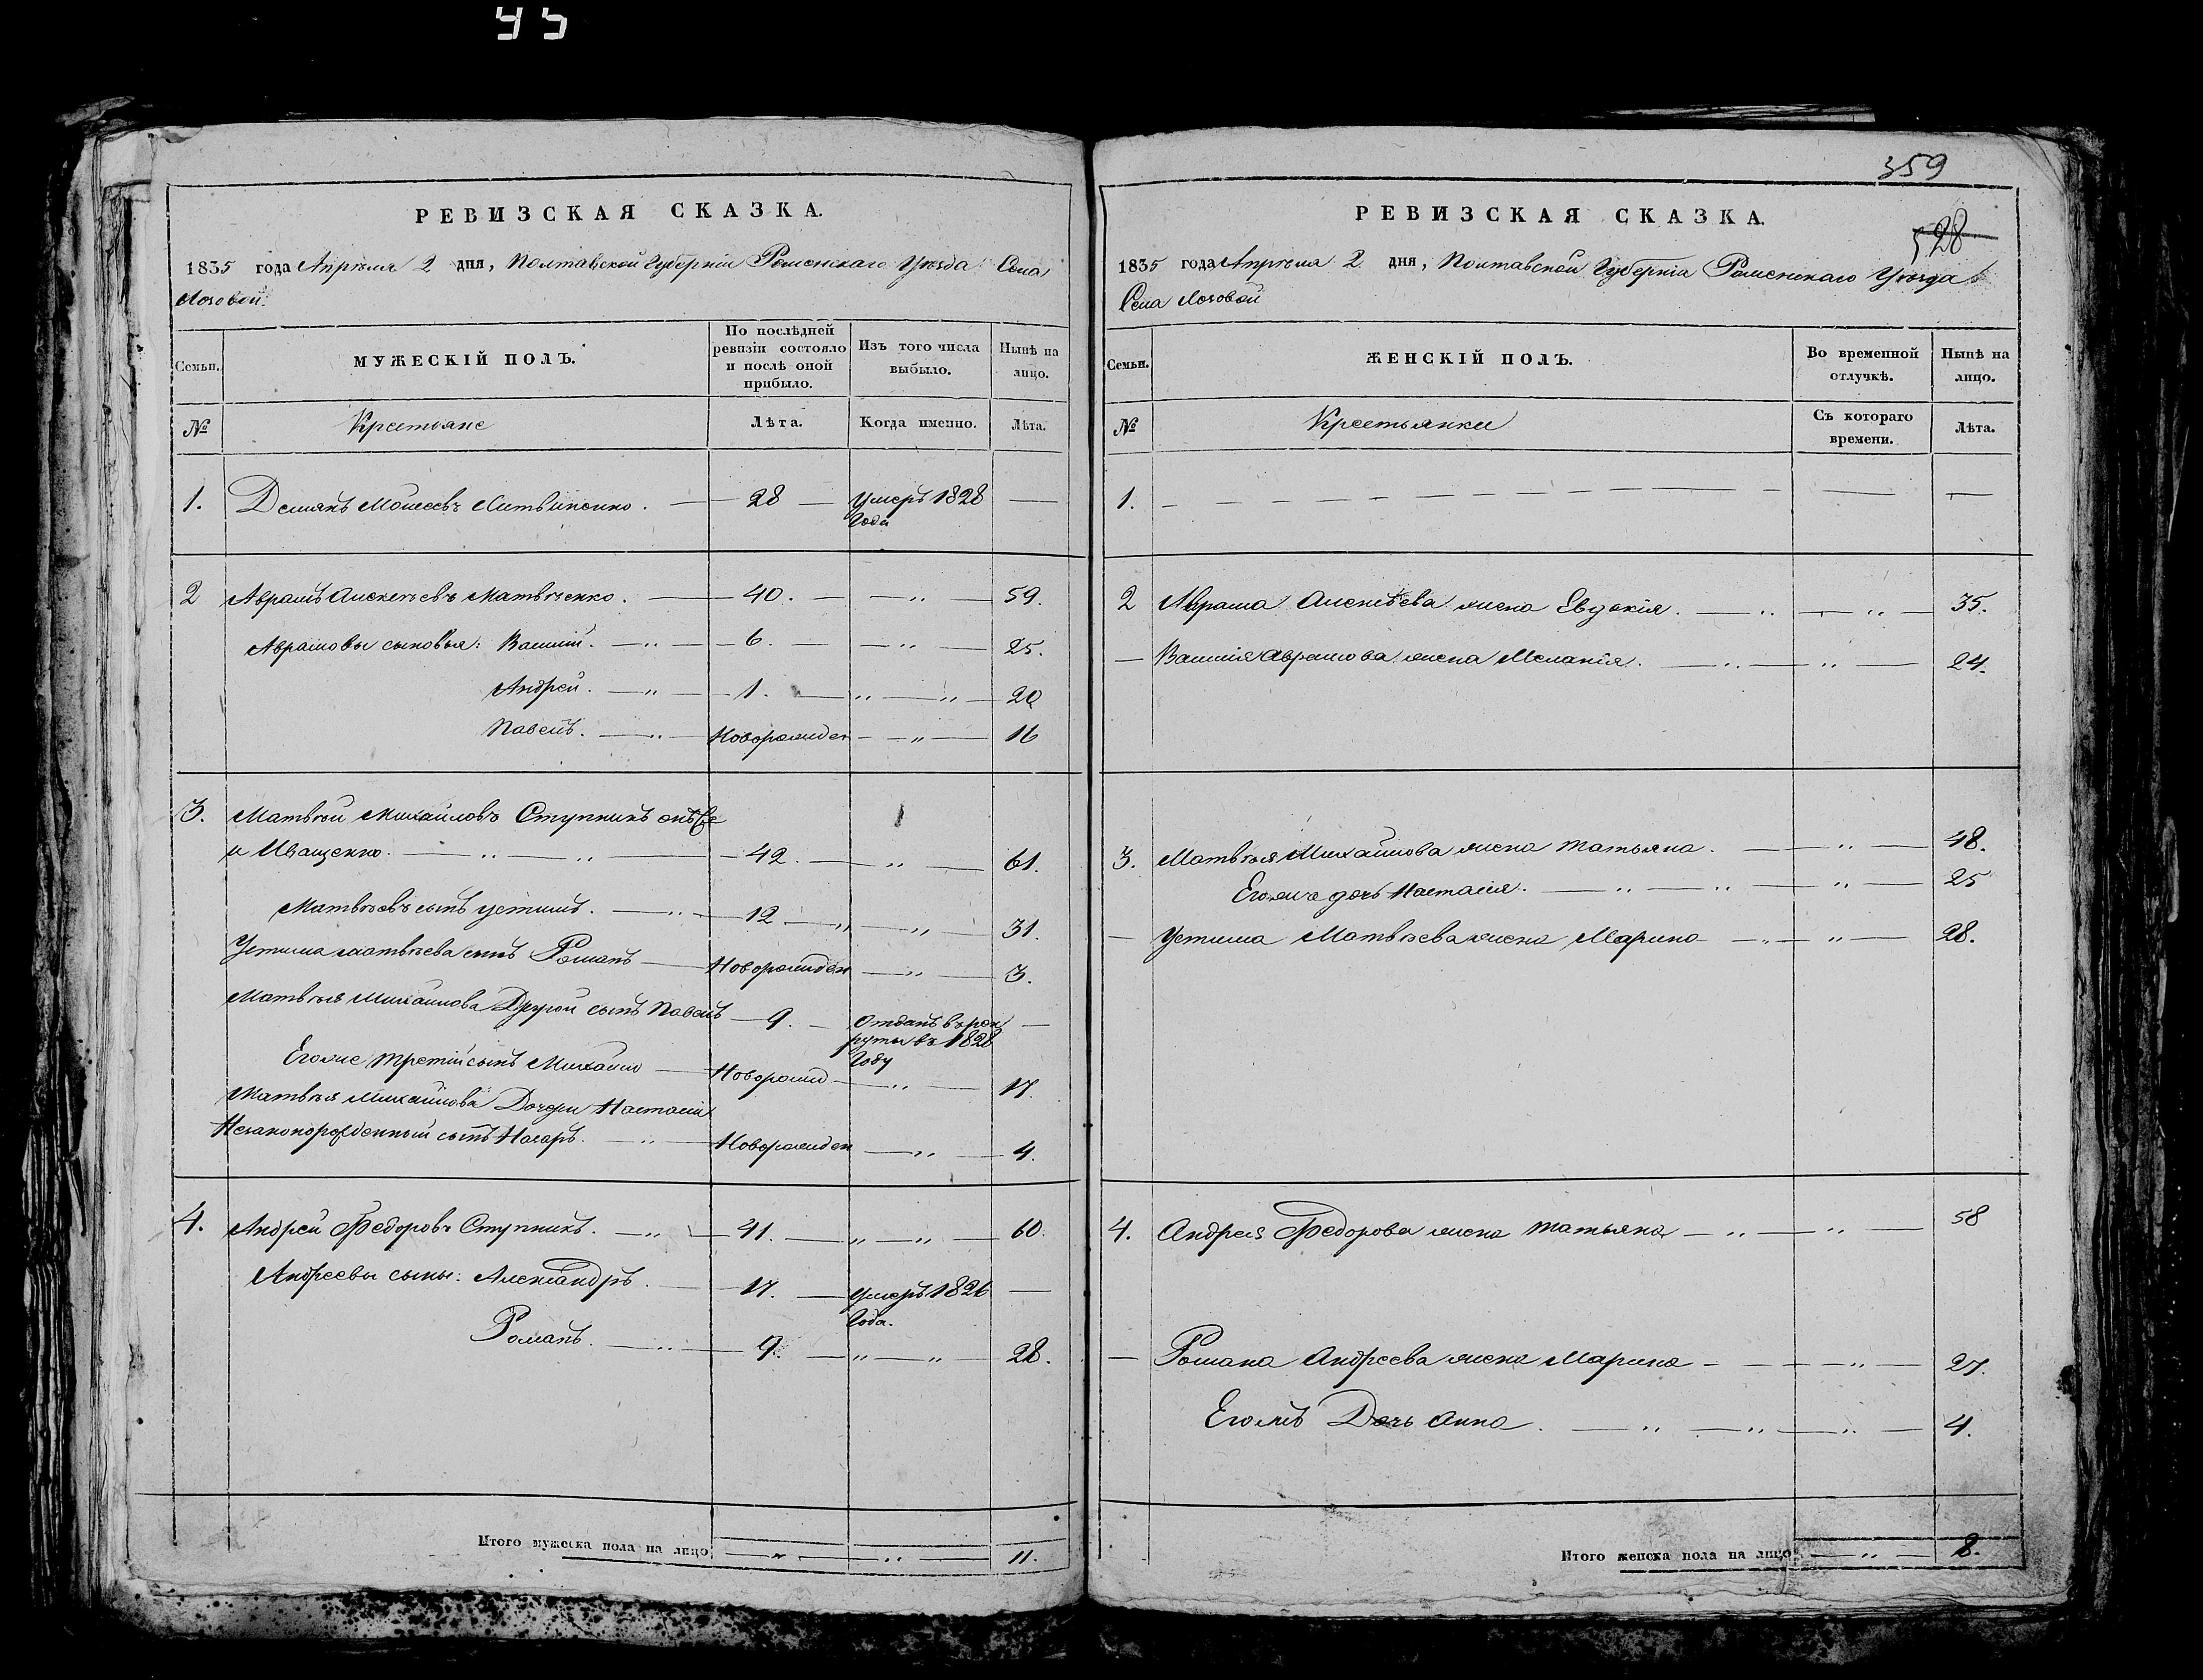 45
РЕВИЗСКАЯ СКАЗКА.
1835 года Апрѣля 2 дня, Полтавской Губерніи Роменскаго Уѣзда Села
Лозовой.
Семьи.
МУЖЕСКІЙ ПОЛЪ.
По послѣдней ревизіи состояло и послѣ оной прибыло.
Изъ того числа выбыло.
Нынѣ на лицо.
№ Крестьяне Лѣта. Когда именно. Лѣта.
1. Демянъ Моисеевъ Литвиненко. 28 Умеръ 1828
Года
2 Аврамъ Алексѣевъ Матвѣенко. 40. 59.
Аврамовы сыновья: Василій. 6. 25.
Андрей. 1. 20
Павелъ. Новорожден 16
3. Матвѣй Михайловъ Ступникъ онъ же
и Иващенко. 42. 61.
Матвѣевъ сынъ Устимъ. 12 31.
Устима Матвѣева сынъ Романъ Новорожден 3.
Матвѣя Михайлова Другой сынъ Павелъ 9. Отданъ въ рек
руты въ 1828
Году
Егоже третій сынъ Михайло Новорожд 17.
Матвѣя Михайлова Дочери Настасіи
Незаконорожденный сынъ Назаръ. Новорожден 4.
4. Андрей Федоровъ Ступникъ. 41. 60.
Андреевы сыны: Александръ. 17. Умеръ 1826
Года.
Романъ. 9. 28.
Итого мужеска пола на лицо 11.
359
528
РЕВИЗСКАЯ СКАЗКА.
1835 года Апрѣля 2 дня, Полтавской Губерніи Роменскаго Уѣзда
Села Лозовой
Семьи.
ЖЕНСКІЙ ПОЛЪ.
Во временной отлучкѣ.
Нынѣ на лицо.
№ Крестьянки Съ котораго времени. Лѣта.
1.
2 Аврама Алексѣева жена Евдокія. 35.
Василія Аврамова жена Меланія. 24.
3. Матвѣя Михайлова жена Татьяна. 48.
Егожъ дочь Настасія. 25
Устима Матвѣева жена Марина 28.
4. Андрея Федорова жена Татьяна 58
Романа Андреева жена Марина 27.
Егожъ Дочь Анна. 4.
Итого женска пола на лицо 8.